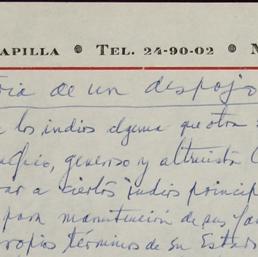 APILLA • TEL. 24-90-02 •
ria de un despojo
los indios alguna que otra
generoso y altruista
a ciertos indios princip
para manutención de sus
propios términos de su Estad